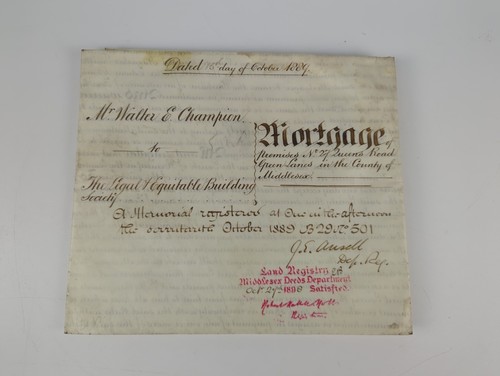 Dated day of October 1889.
Mr. Walter E. Champion
to
The Legal & Equitable Building
Society
Mortgage of
premises No. 27 Queens Road
Green Lanes in the County of
Middlesex.
A Memorial registered at One in the afternoon
the seventeenth October 1889 B 29 No 501
J. E. Ansell
Dep. Reg.
Land Registry
Middlesex Deeds Department
Oct 27th 1898 Satisfied.